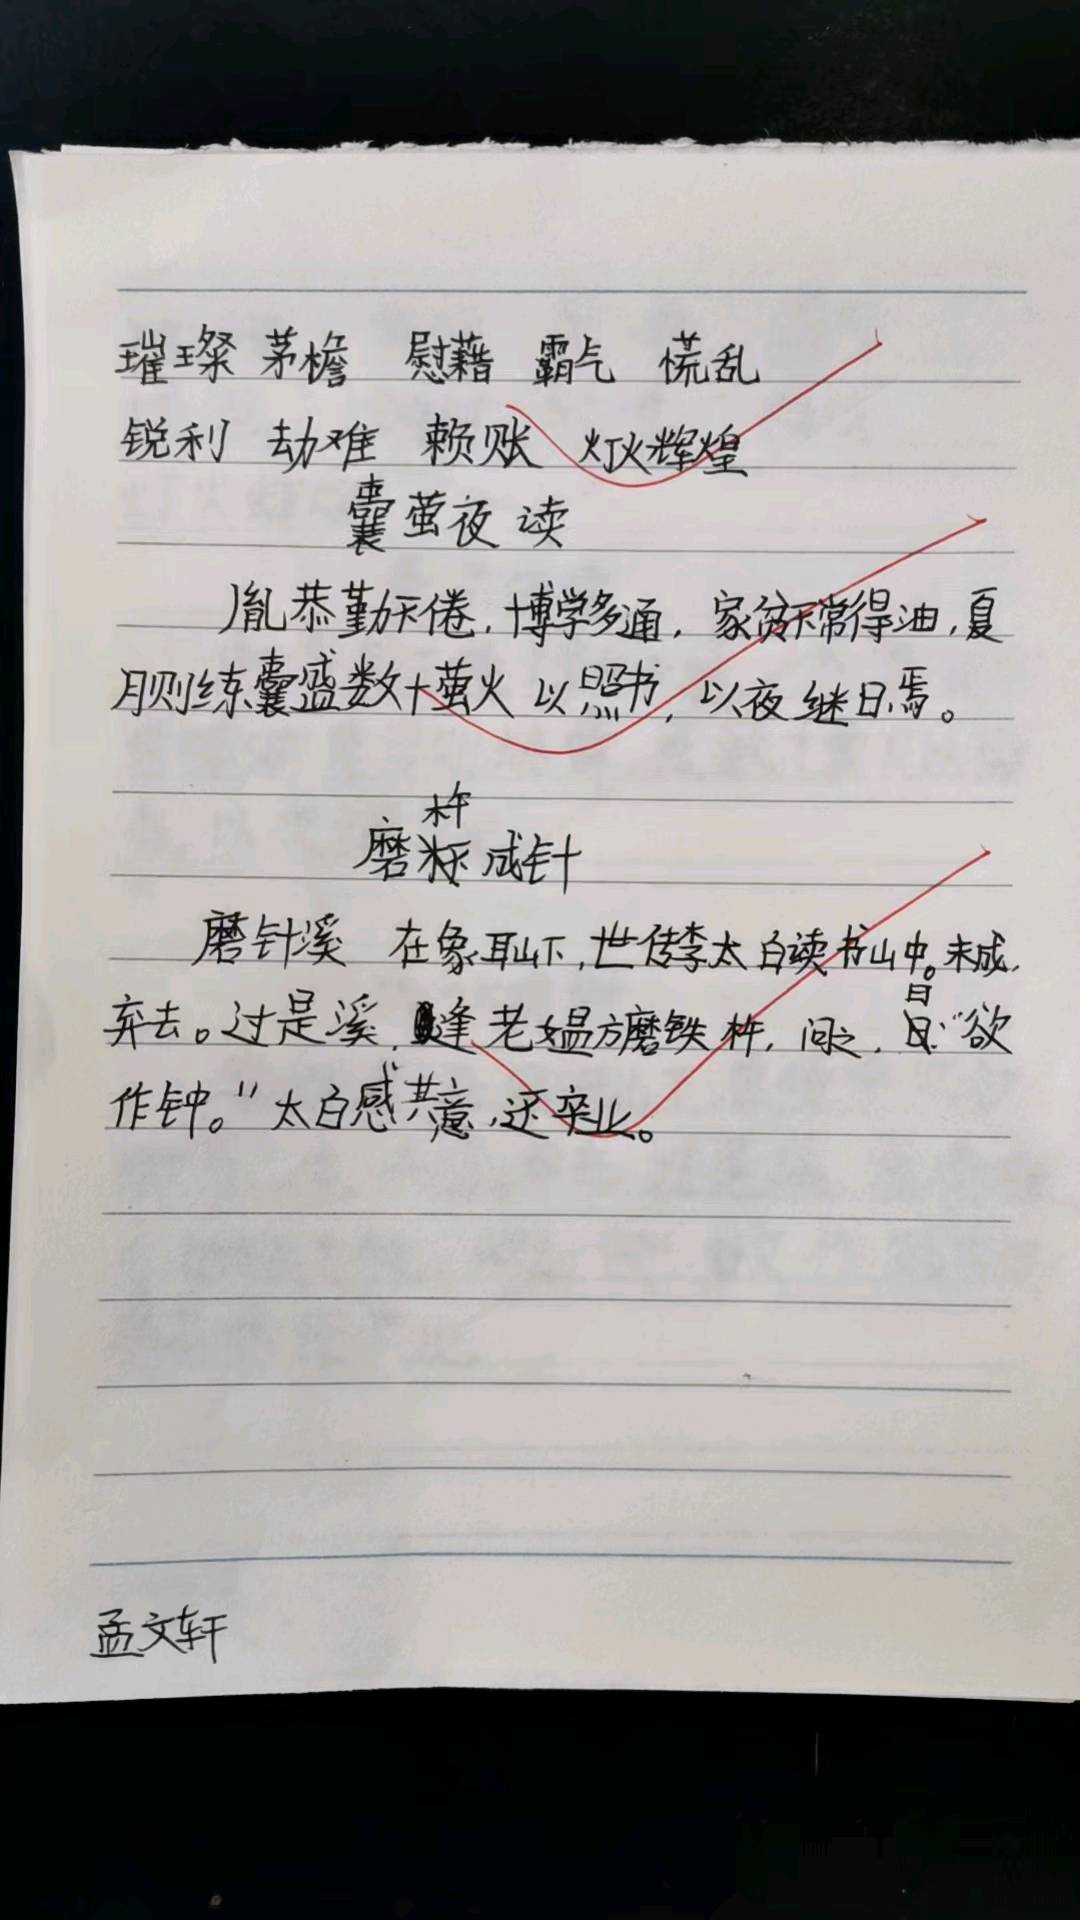 璀璨 茅檐 慰藉 霸气 慌乱
锐利 劫难 赖账 灯火辉煌
囊萤夜读
胤恭勤不倦,博学多通,家贫不常得油,夏
月则练囊盛数十萤火以照书,以夜继日焉。
杵
磨成针
磨针溪 在象耳山下,世传李太白读书山中。未成,
弃去。过是溪,逢老媪方磨铁杵,问之,曰:“欲
作钟。”太白感其意,还卒业。
孟文轩